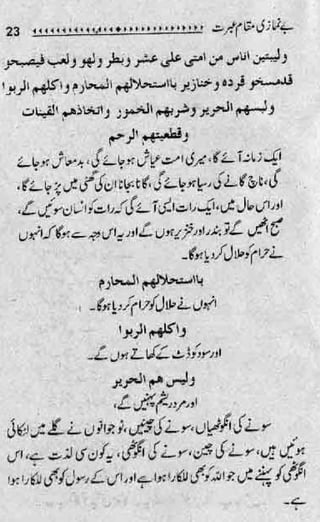 بے نمازی مقام عبرت 23
وليبتين اناس من امتى على عشر وبطر ولهو ولعب فيصبحو
قدمسخو قرده وخنازير بااستحلالهم المحارم واكلهم الربوا
ولبسهم الحرير وشربهم الخمور واتخاذهم القينات
وقطعيتهم الرحم
ایک زمانہ آئے گا، میری امت عیاش ہوجائے گی، بدمعاش ہوجائے
گی، ناچ گانے کی رسیا ہوجائے گی، گانا بجانا ان کی گھٹی میں پڑ جائے گا،
اور اس حال میں، ایک رات ایسی آئے گی کہ رات کو انسان سوئیں گے،
صبح اٹھیں گے تو بندر اور خنزیر ہوں گے اور یہ اس وجہ سے ہوگا کہ انہوں
نے حرام کو حلال کردیا ہوگا۔
بااستحلالهم المحارم
انہوں نے حلال کو حرام کردیا ہوگا۔
واكلهم الربوا
اور سود کو ڈٹ کے کھاتے ہوں گے۔
وليس هم الحرير
اور مرد ریشم پہنیں گے،
سونے کی انگوٹھیاں، سونے کی چینیں، نوجوانوں نے گلے میں لٹکائی
ہوئیں ہیں، سونے کی چین، سونے کی انگوٹھی، یہ کون سی لذت ہے، اس
انگوٹھی کو پہننے میں جو اللہ کو بھی للکارا ہوا ہے اور اس کے رسول کو بھی للکارا ہوا
ہے۔